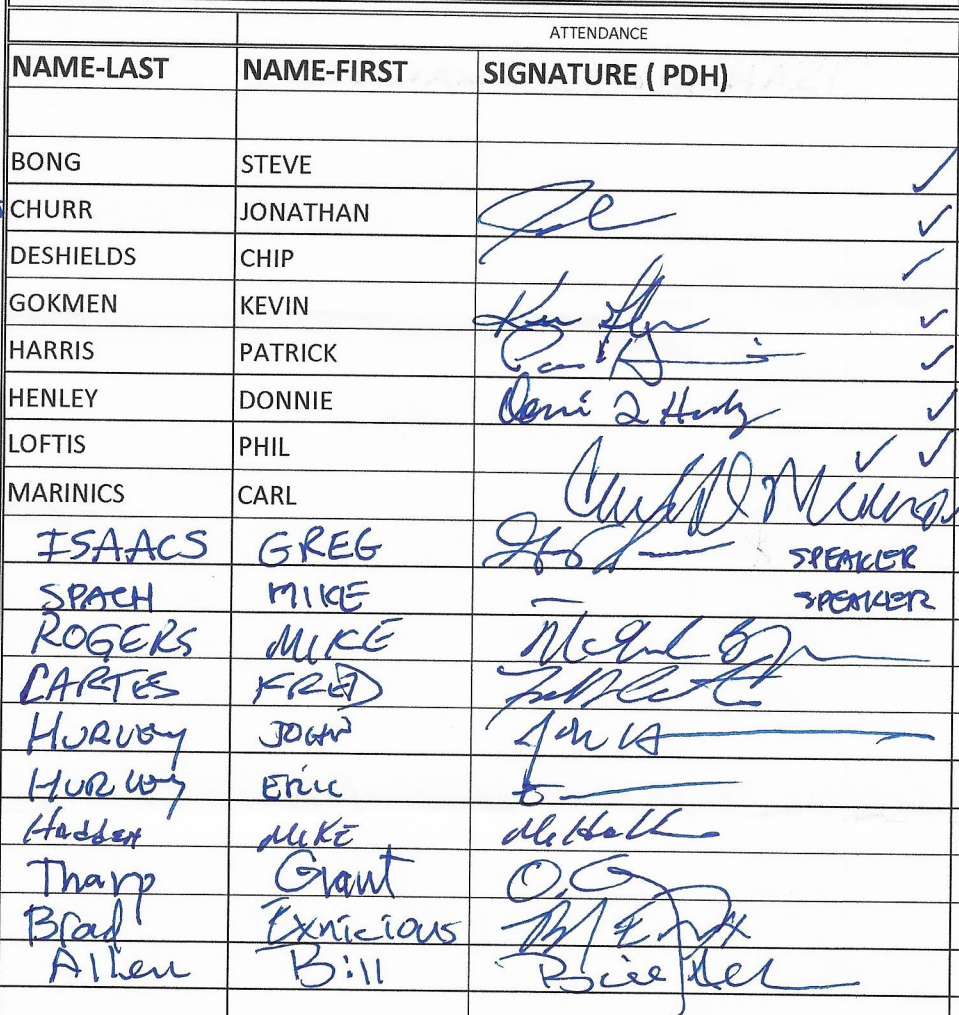 ATTENDANCE
NAME-LAST NAME-FIRST SIGNATURE ( PDH)
BONG STEVE ✓
CHURR JONATHAN ✓
DESHIELDS CHIP ✓
GOKMEN KEVIN ✓
HARRIS PATRICK ✓
HENLEY DONNIE ✓
LOFTIS PHIL ✓ ✓
MARINICS CARL
ISAACS GREG SPEAKER
SPACH MIKE SPEAKER
ROGERS MIKE
CARTES FRED
HURVEY JOHN
ERIC
Hadden MIKE
Tharp Grant
Brad Exnicious
Allen Bill